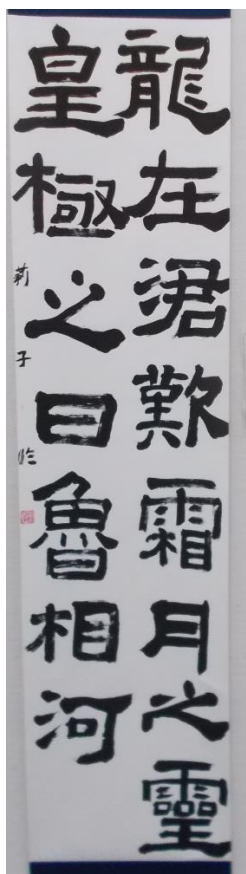 龍在涒歎霜月之靈
皇極之日魯相河
莉子臨